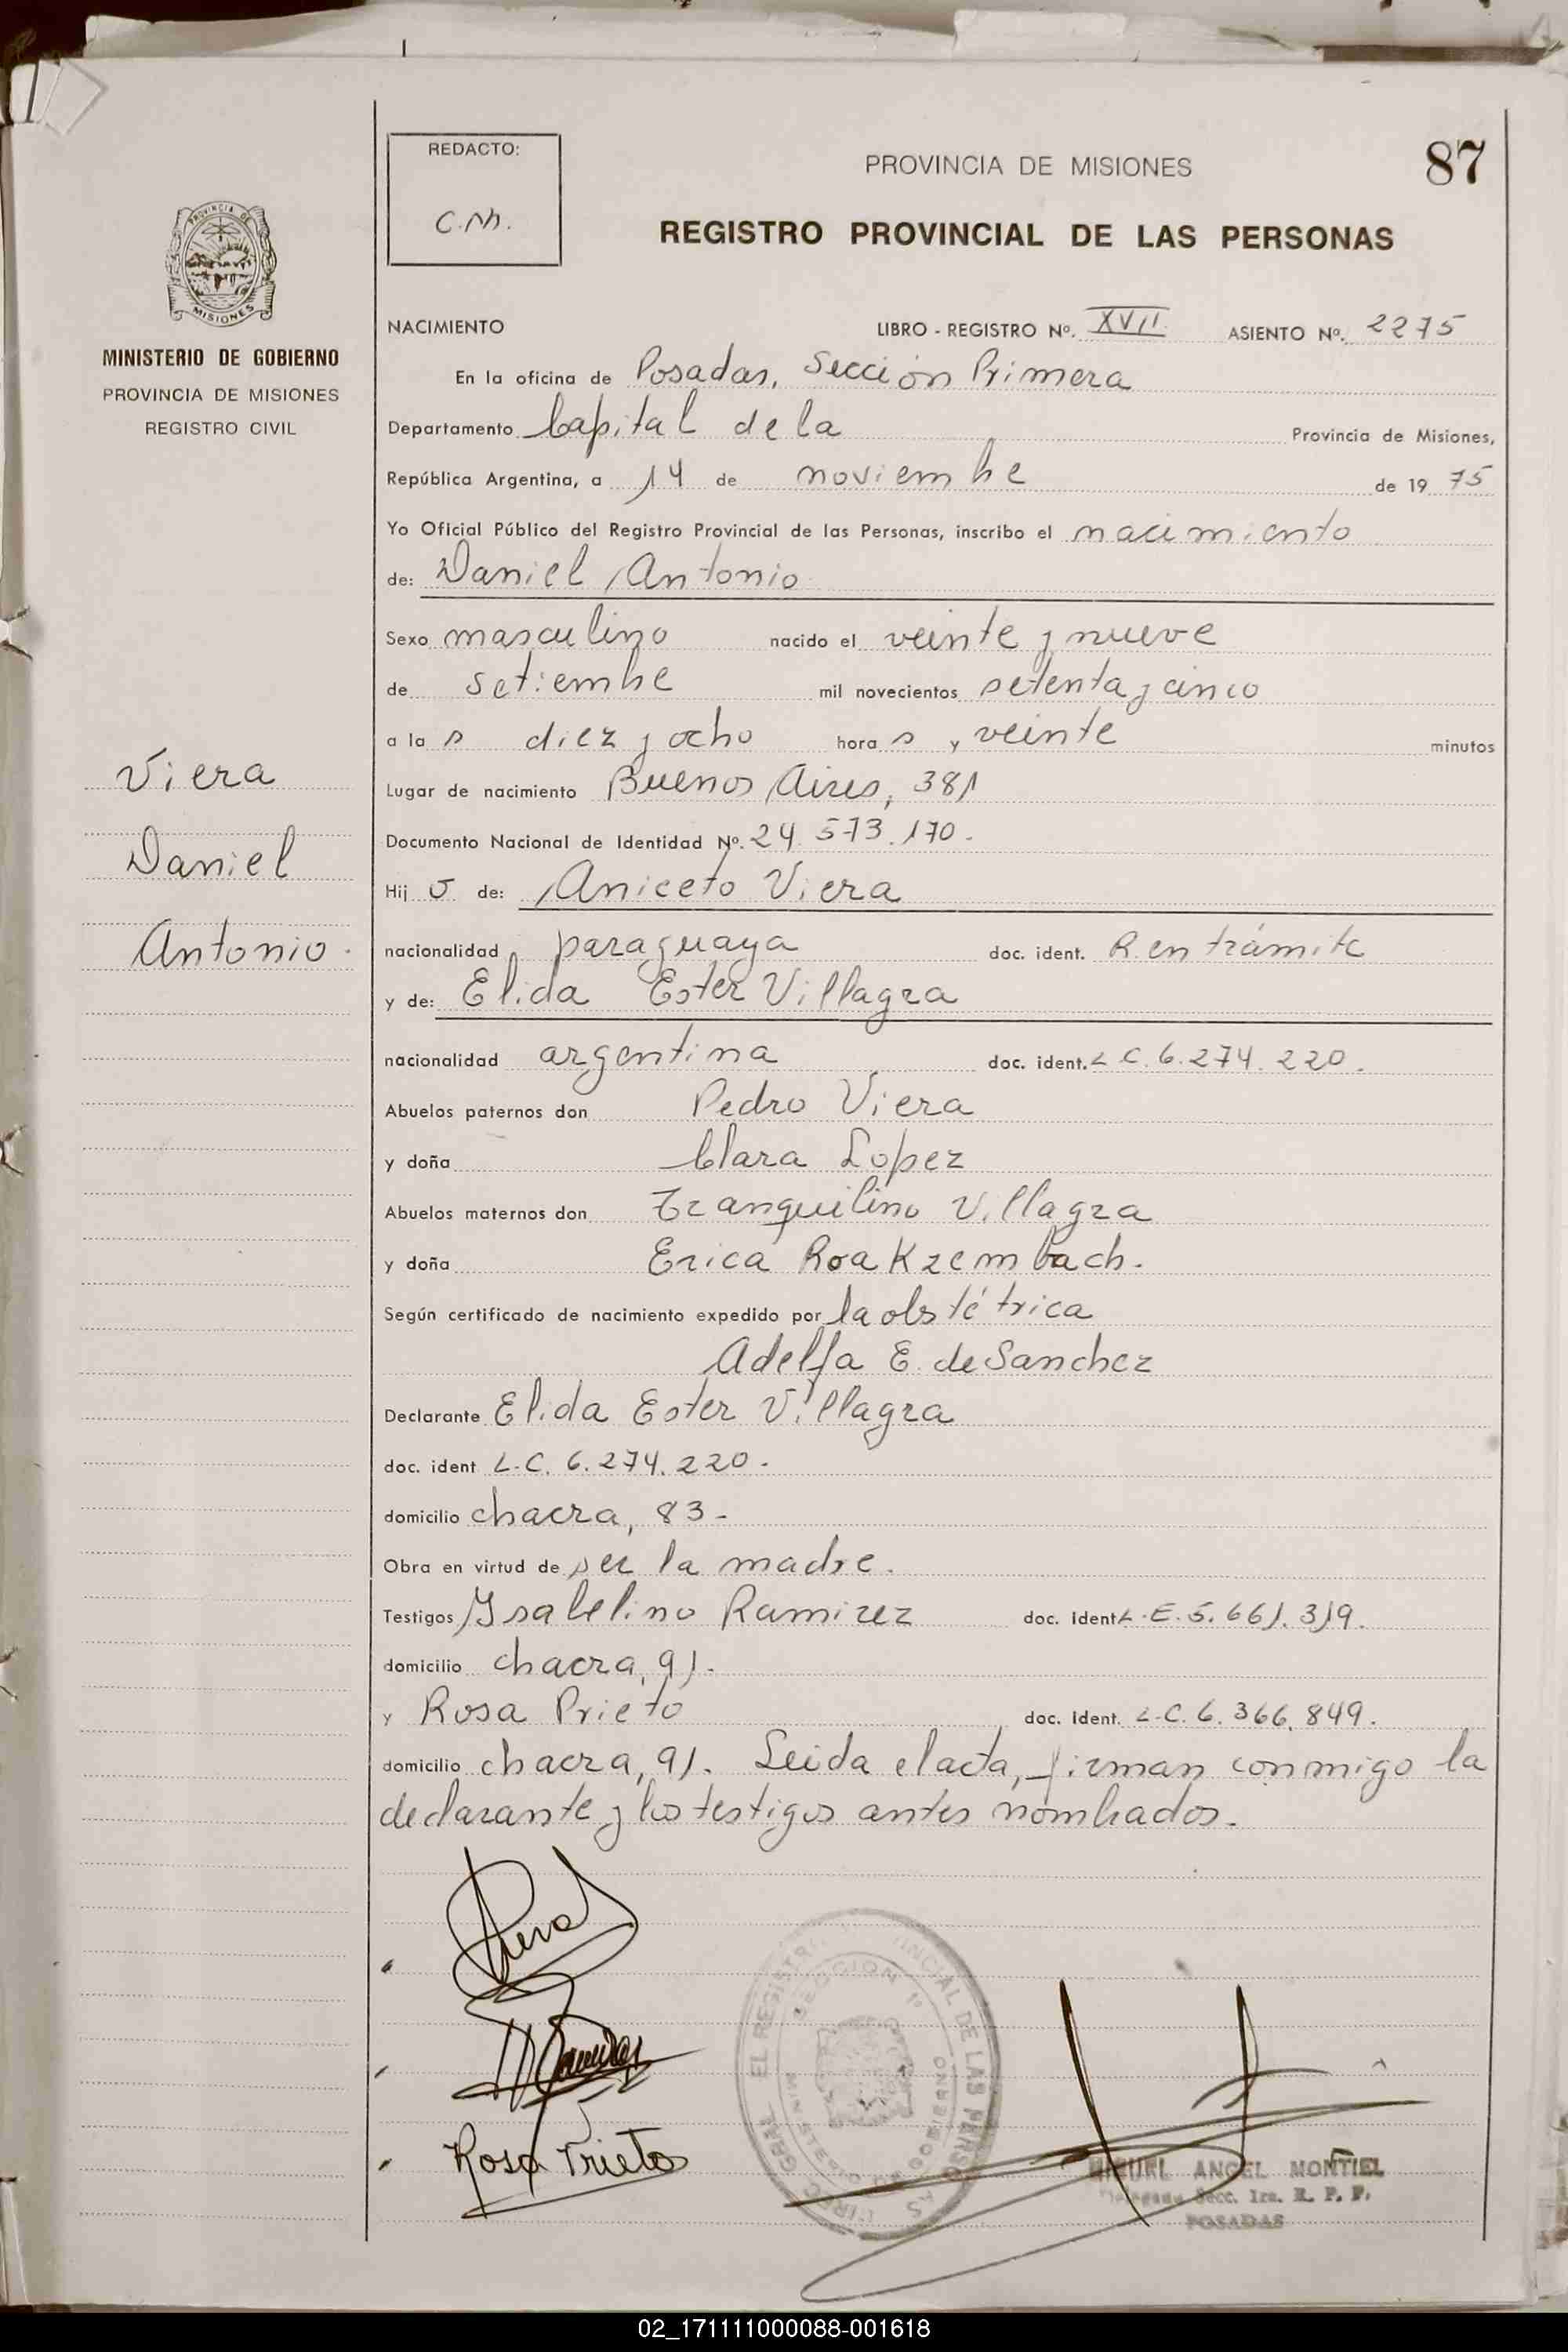 REDACTO:
C.M.
PROVINCIA DE MISIONES
87
REGISTRO PROVINCIAL DE LAS PERSONAS
PROVINCIA DE
MISIONES
MINISTERIO DE GOBIERNO
PROVINCIA DE MISIONES
REGISTRO CIVIL
Viera
Daniel
Antonio.
NACIMIENTO LIBRO - REGISTRO Nº. XVII ASIENTO Nº. 2275
En la oficina de Posadas, Sección Primera
Departamento Capital de la Provincia de Misiones,
República Argentina, a 14 de noviembre de 19 75
Yo Oficial Público del Registro Provincial de las Personas, inscribo el nacimiento
de: Daniel Antonio
Sexo masculino nacido el veinte y nueve
de setiembre mil novecientos setenta y cinco
a la s diez y ocho hora s y veinte minutos
Lugar de nacimiento Buenos Aires, 381
Documento Nacional de Identidad Nº. 24.573.170.
Hij o de: Aniceto Viera
nacionalidad paraguaya doc. ident. R. en trámite
y de: Elida Ester Villagra
nacionalidad argentina doc. ident. L C. 6.274.220.
Abuelos paternos don Pedro Viera
y doña Clara Lopez
Abuelos maternos don Tranquilino Villagra
y doña Erica Roa Krembach.
Según certificado de nacimiento expedido por la obstétrica
Adelfa E. de Sanchez
Declarante Elida Ester Villagra
doc. ident L.C. 6.274.220.
domicilio chacra, 83-
Obra en virtud de ser la madre.
Testigos Ysabelino Ramirez doc. ident L.E. 5.661.319.
domicilio chacra, 91.
y Rosa Prieto doc. ident. L.C. 6.366.849.
domicilio chacra, 91. Leida el acta, firman conmigo la
declarante y los testigos antes nombrados.
Rosa Prieto
SECCION 1ª
MIGUEL ANGEL MONTIEL
Delegado Secc. 1ra. R. P. P.
POSADAS
02_171111000088-001618